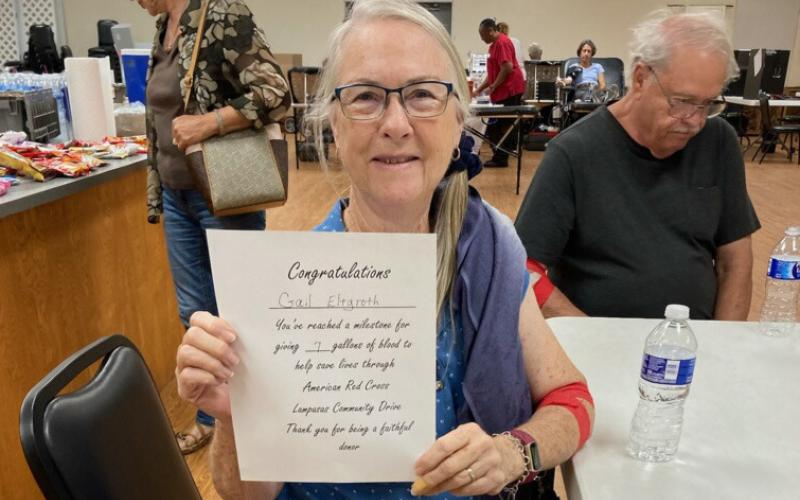 Congratulations
Gail Eltgroth
You've reached a milestone for
giving 7 gallons of blood to
help save lives through
American Red Cross
Lampasas Community Drive
Thank you for being a faithful
donor